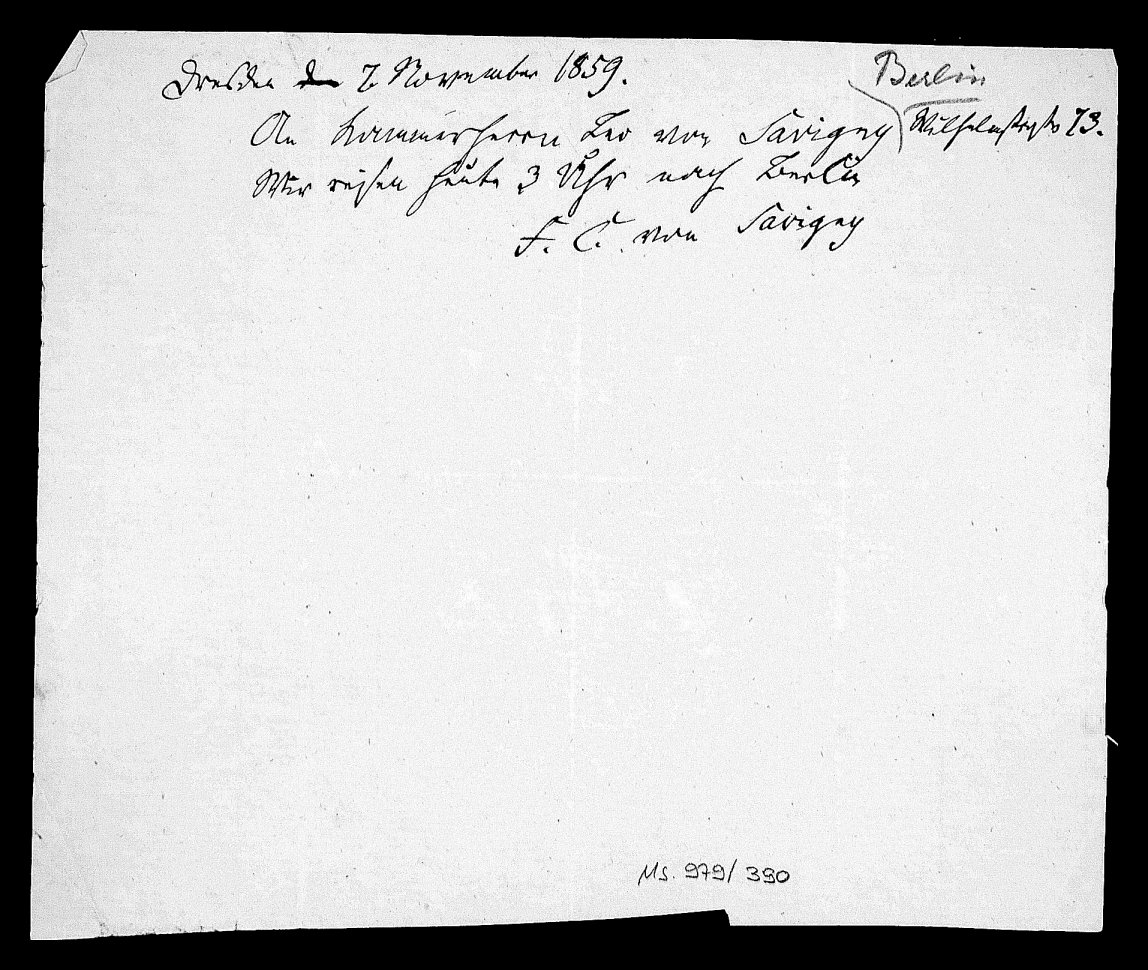 Dresden 7. November 1859.
Berlin
An Kammerherrn Leo von Savigny Wilhelmstraße 73.
Wir reisen heute 3 Uhr nach Berlin
F. C. von Savigny
Ms. 979/390